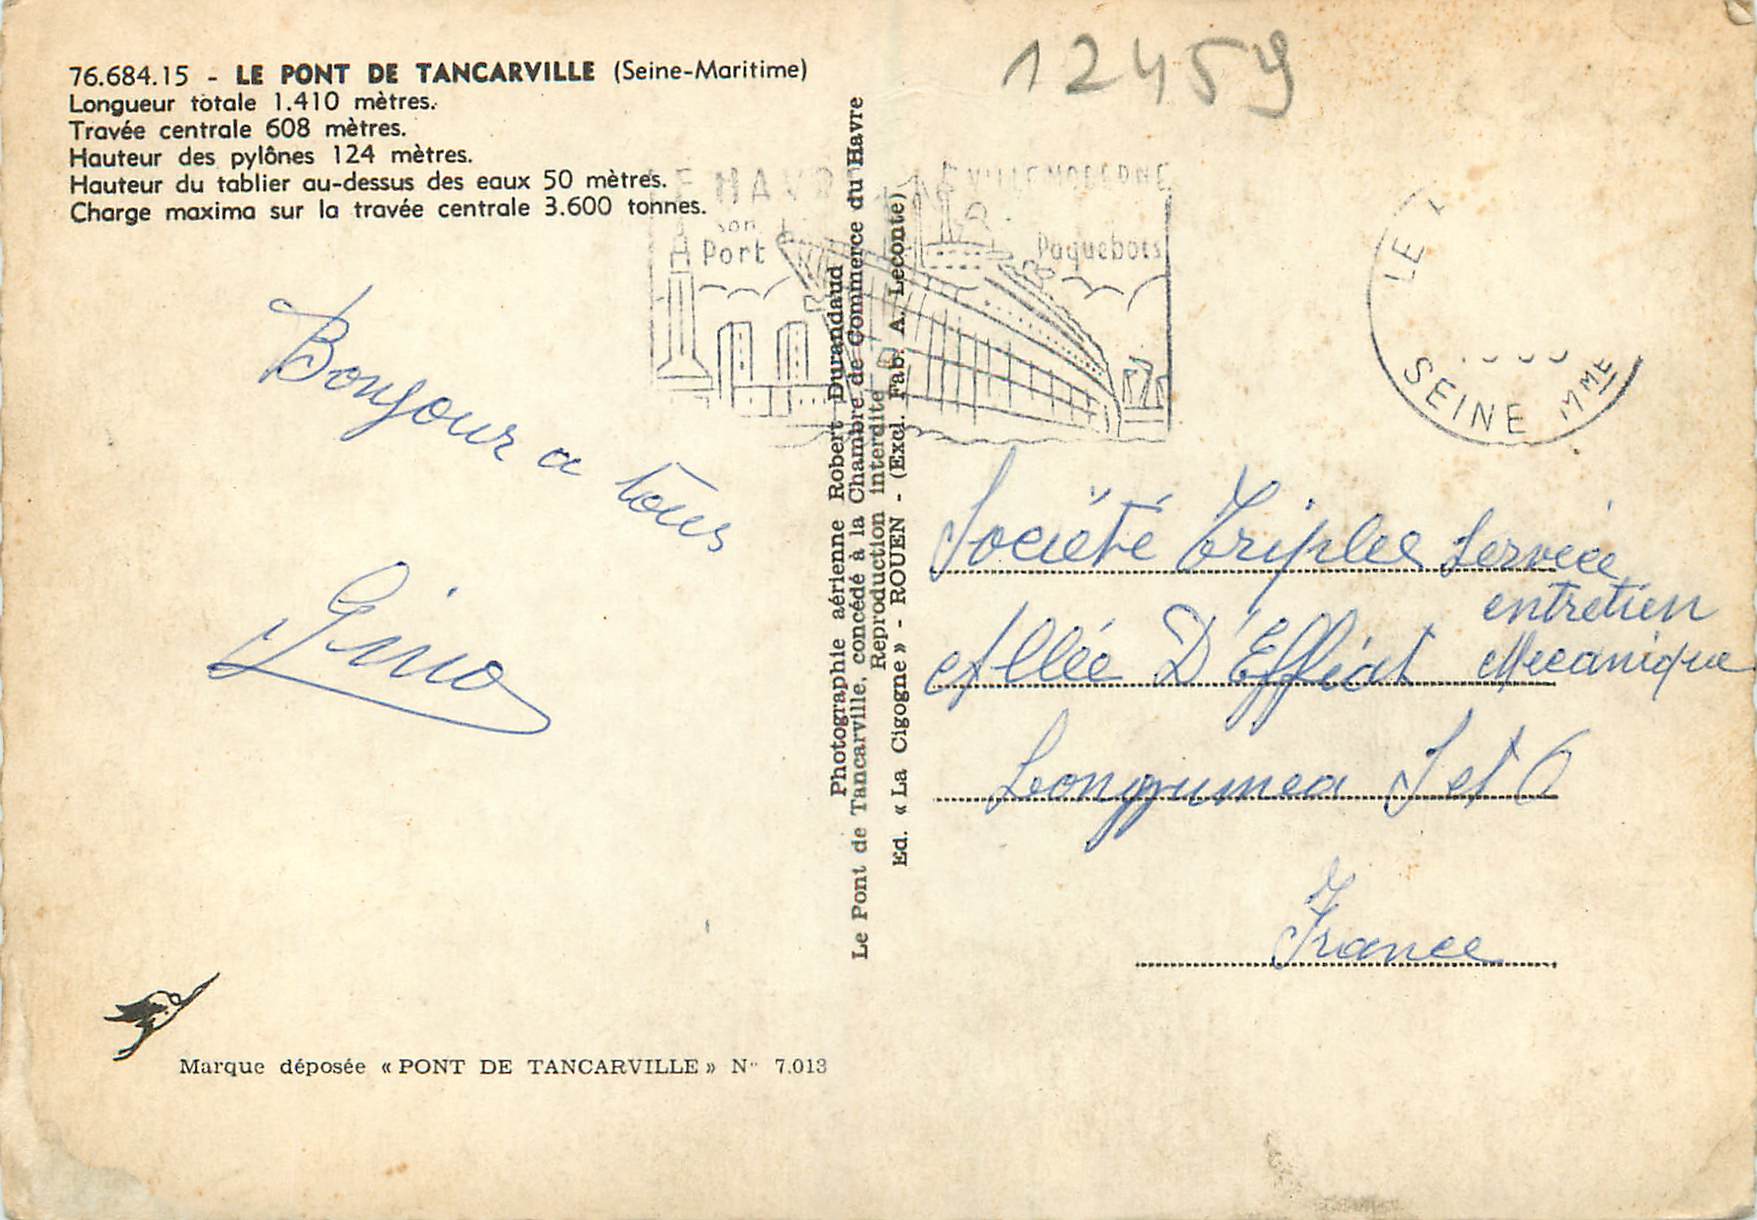 76.684.15 - LE PONT DE TANCARVILLE (Seine-Maritime)
Longueur totale 1.410 mètres.
Travée centrale 608 mètres.
Hauteur des pylônes 124 mètres.
Hauteur du tablier au-dessus des eaux 50 mètres.
Charge maxima sur la travée centrale 3.600 tonnes.
12459
LE HAVRE SA VILLE MODERNE
son
Port
Paquebots
LE
SEINE MME
Bonjour a tous
Gino
Photographie aérienne Robert Durandaud
Le Pont de Tancarville, concédé à la Chambre de Commerce du Havre
Reproduction interdite
Ed. « La Cigogne » - ROUEN - (Excl. Fab. A. Leconte)
Société Triples Service
entretien
Allée D'Effiat Mecanique
Longjumea S et O
France
Marque déposée « PONT DE TANCARVILLE » N° 7.013